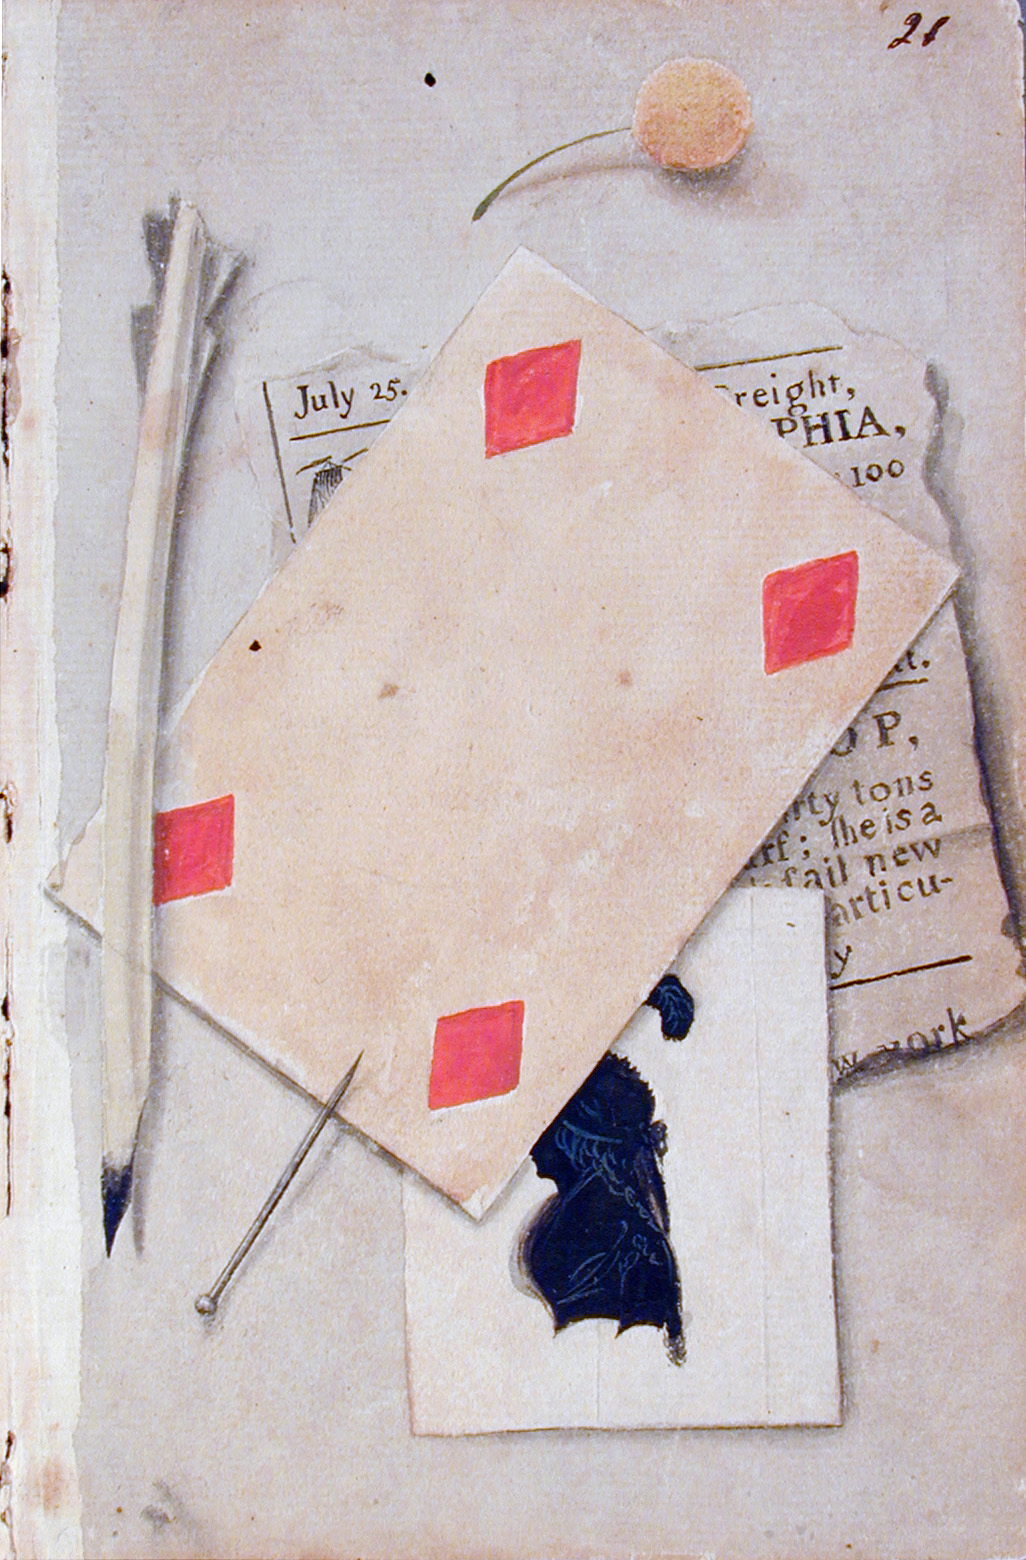 21
July 25.
reight,
PHIA,
100
t.
O P,
rty tons
ff; ſhe is a
ſail new
articu-
y
w york